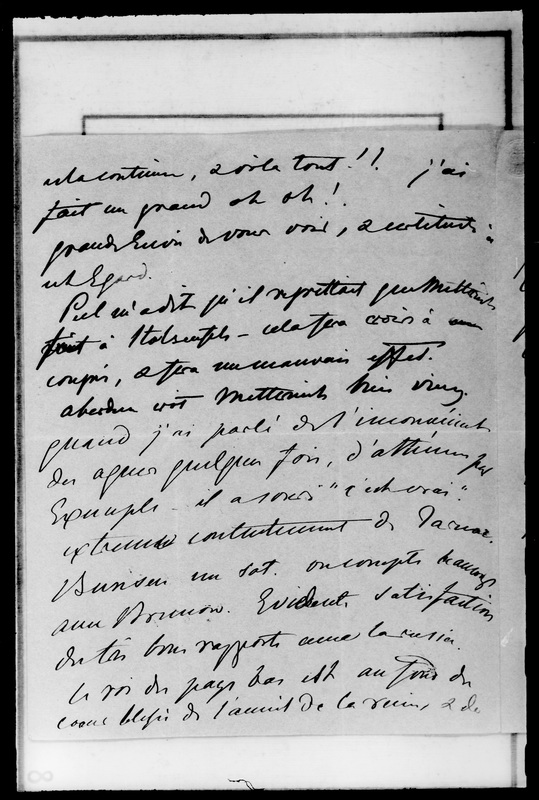 cela continue, & voilà tout!! j'ai
fait un grand oh oh!
grande Envie de vous voir, & certitude à
cet Egard.
Peel m'a dit qu'il regrettait que Metternich
fut à - cela fera croire à un
congrès, & fera un mauvais effet.
aberdeen croit Metternich bien vieux,
quand j'ai parlé de l'inconvénient
des agens quelques fois, d'athènes par
Exemple - il a souri "c'est vrai".
extreme contentement de Jarnac.
Bunsen un sot. on compte beaucoup
avec Brunow. Evidente satisfaction
des très bons rapports avec la russie.
le roi des pays bas est au fond du
coeur blessé de l'accueil de la reine, & de